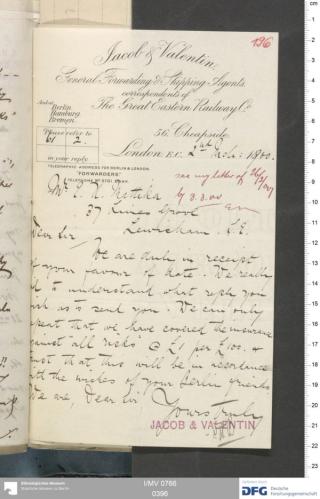 196
Jacob & Valentin,
General Forwarding & Shipping Agents,
correspondents of
The Great Eastern Railway Co.
And at
Berlin
Hamburg
Bremen
56, Cheapside,
Please refer to
61 2.
in your reply
London E.C. 2nd 1900.
TELEGRAPHIC ADDRESS FOR BERLIN & LONDON.
"FORWARDERS"
see my letter of
Mr.
37 Kings Grove
Dear Sir
We are duly in receipt
of your favour of date. We really
to understand what reply you
wish us to send you. We can only
repeat that we have covered the insurance
against "all risks" @ £1 per £100. &
trust that this will be in accordance
with the wishes of your Berlin friends
We are, Dear Sir
Yours truly
JACOB & VALENTIN
Ethnologisches Museum
Staatliche Museen zu Berlin
I/MV 0766
0396
Gefördert durch
DFG Deutsche
Forschungsgemeinschaft
cm
1
2
3
4
5
6
7
8
9
10
11
12
13
14
15
16
17
18
19
20
21
22
23